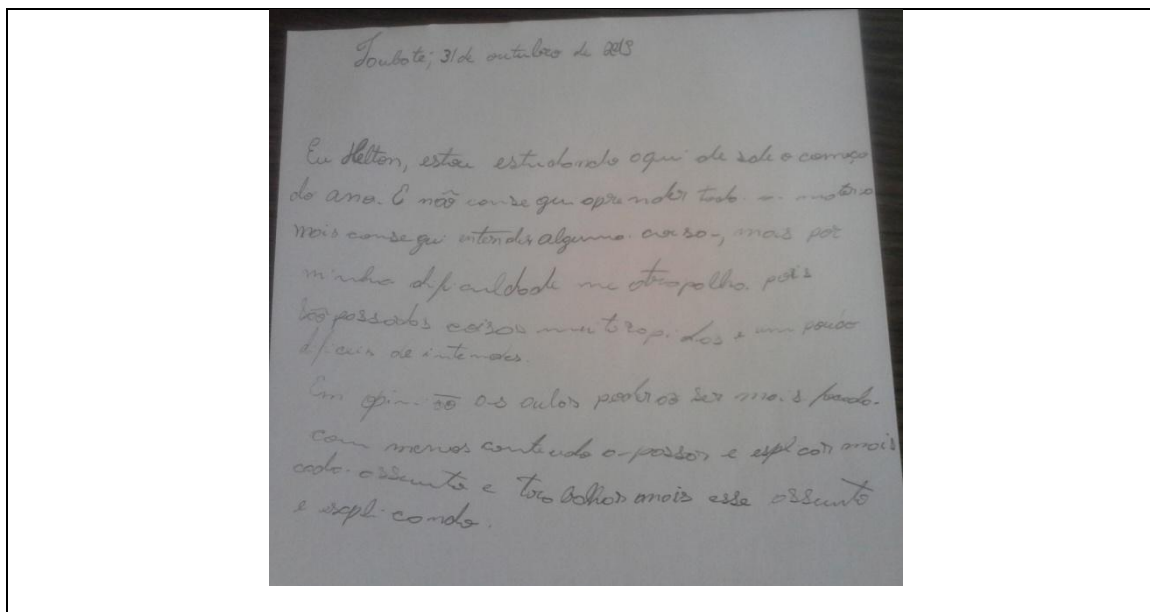 Toubate, 31 de outubro de 2013
Eu Helton, estou estudando aqui de sde o começo
do ano. E não conse gui aprender toda a matéria
mais consegui intender alguma coisa, mas por
minha dificuldade me atrapalha. pois
são passados coisas muito rapidas e um pouco
dificeis de intender.
Em opinião as aulas podiam ser mais
com menos conteudo a passar e esplicar mais
cada assunto e trabalhar mais esse assunto
e esplicando.